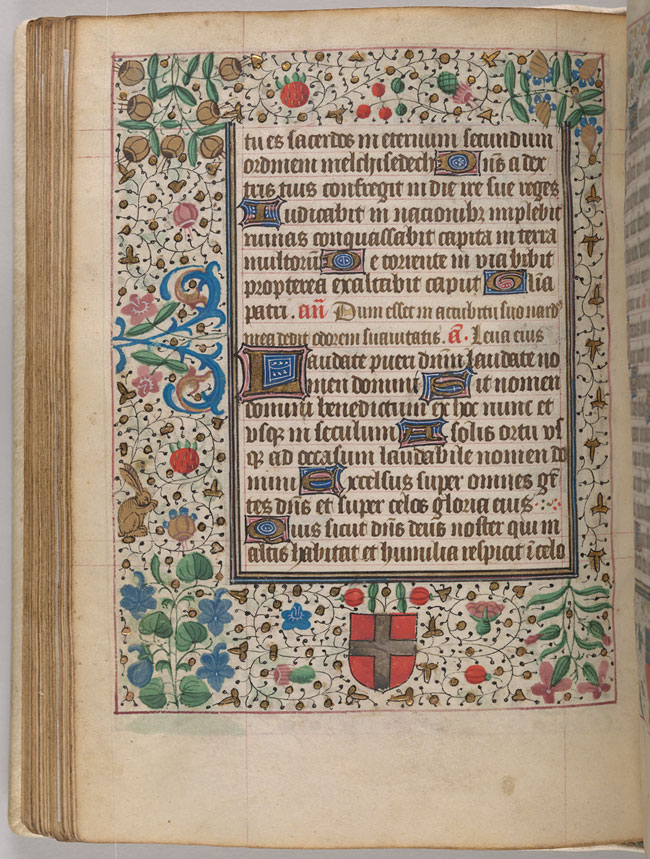 tu es sacerdos in eternum secundum
ordinem melchisedech Dn̄s a dex
tris tuis confregit in die ire sue reges
Iudicabit in nacionibꝫ implebit
ruinas conquassabit capita in terra
multorū De torrente in via bibit
propterea exaltabit caput Gl̄ia
patri. an̄ Dum esset in accubitu suo nard
mea dedit odorem suavitatis. a᷈. Leva eius
Laudate pueri dn̄m laudate no
men domini Sit nomen
domini benedictum ex hoc nunc et
vsqꝫ in seculum A solis ortu vs
qꝫ ad occasum laudabile nomen do
mini Excelsus super omnes gē
tes dn̄s et super celos gloria eius
Quis sicut dn̄s deus noster qui in
altis habitat et humilia respicit ī celo